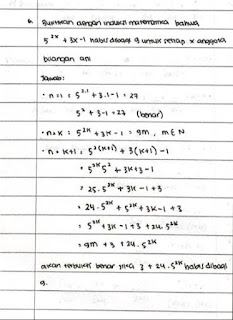 6. Buktikan dengan induksi matematika bahwa
5²ˣ + 3x - 1 habis dibagi 9 untuk setiap x anggota
bilangan asli
Jawab:
• n=1 : 5²·¹ + 3.1 - 1 = 27
5² + 3 - 1 = 27 (benar)
• n=k : 5²ᵏ + 3k - 1 = 9m, m ∈ N
• n = k+1 : 5²⁽ᵏ⁺¹⁾ + 3(k+1) - 1
= 5²ᵏ 5² + 3k + 3 - 1
= 25. 5²ᵏ + 3k - 1 + 3
= 24. 5²ᵏ + 5²ᵏ + 3k - 1 + 3
= 5²ᵏ + 3k - 1 + 3 + 24. 5²ᵏ
= 9m + 3 + 24. 5²ᵏ
akan terbukti benar jika 3 + 24. 5²ᵏ habis dibagi
9.